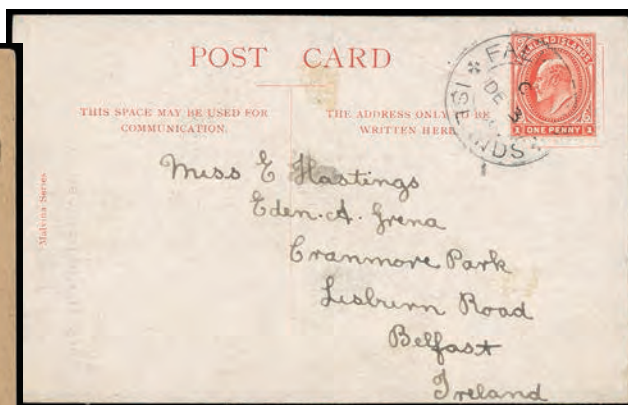 POST CARD
THIS SPACE MAY BE USED FOR
COMMUNICATION.
THE ADDRESS ONLY TO BE
WRITTEN HERE
FALKLAND ISLANDS
1 ONE PENNY 1
DE 3
Malvina Series
Miss E Hastings
Eden. A. Grena
Cranmore Park
Lisburn Road
Belfast
Ireland